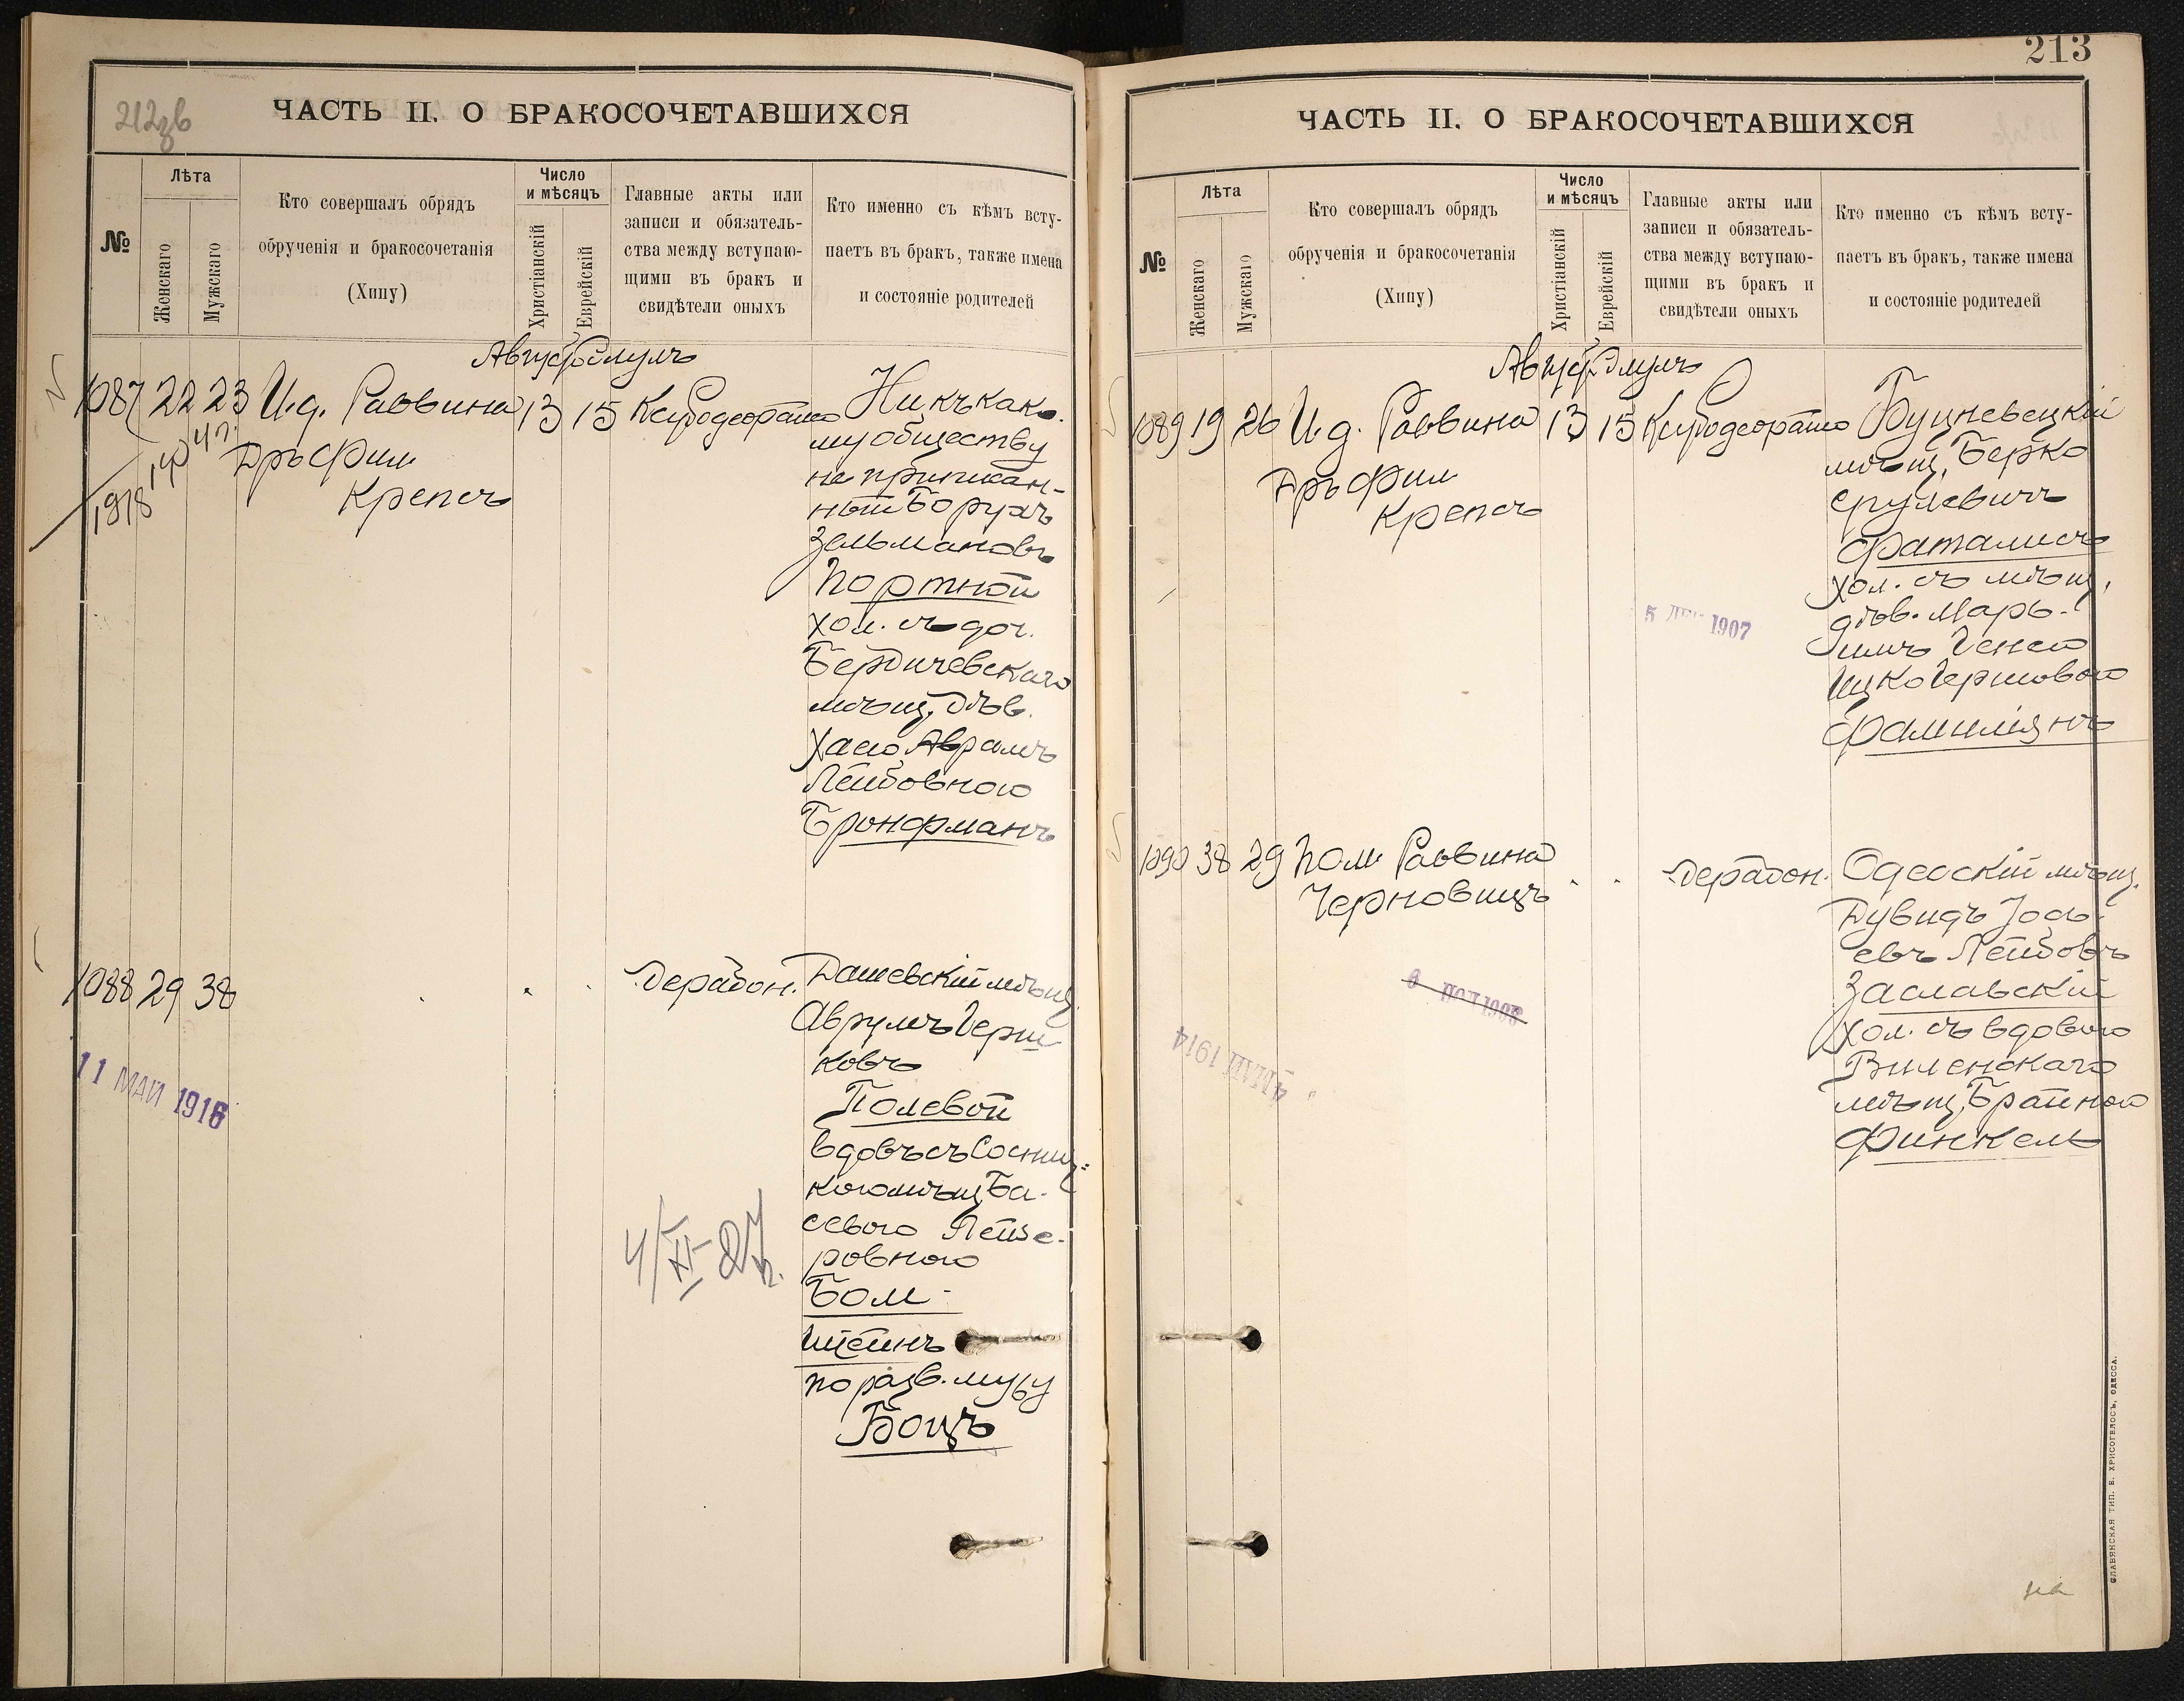 212зв
ЧАСТЬ II. О БРАКОСОЧЕТАВШИХСЯ
№
Лѣта
Женскаго
Мужскаго
Кто совершалъ обрядъ
обрученія и бракосочетанія
(Хипу)
Число
и мѣсяцъ
Христіанскій
Еврейскій
Главные акты или
записи и обязатель-
ства между вступаю-
щими въ бракъ и
свидѣтели оныхъ
Кто именно съ кѣмъ всту-
паетъ въ бракъ, также имена
и состояніе родителей
Август Элулъ
1087 22 23 И.д. Раввина 13 15
Д-ръ Фил.
Крепсъ
1918
Ни къ како-
му обществу
не приписан-
ный Борухъ
Зельмановъ
Портной
хол. съ доч.
Бердичевскаго
мѣщ. дѣв.
Хаею Аврамъ
Лейбовною
Бронфманъ
1088 29 38
11 МАЙ 1916
Дерабон.
Дашевскій мѣщ.
Аврумъ Герш
ковъ
Полевой
вдовъ съ Сосниц-
кою мѣщ. Ба-
севою Лейзе-
ровною
Бом-
штейнъ
по разв. мужу
Боцъ
4/XI-27 г.
213
ЧАСТЬ II. О БРАКОСОЧЕТАВШИХСЯ
№
Лѣта
Женскаго
Мужскаго
Кто совершалъ обрядъ
обрученія и бракосочетанія
(Хипу)
Число
и мѣсяцъ
Христіанскій
Еврейскій
Главные акты или
записи и обязатель-
ства между вступаю-
щими въ бракъ и
свидѣтели оныхъ
Кто именно съ кѣмъ всту-
паетъ въ бракъ, также имена
и состояніе родителей
Август Элулъ
1089 19 26 И.д. Раввина 13 15
Д-ръ Фил
Крепсъ
5 ДЕК 1907
Буцневецкій
мѣщ. Берко
Срулевичъ
Фаталисъ
хол. съ мѣщ.
дѣв. Марь-
имъ Генею
Ицко Гершовою
Фамилянъ
1090 38 29 Пом. Раввина
Черновицъ
Дерабон.
4 МАЙ 1914
Одесскій мѣщ.
Дувидъ Іось-
евъ Лейбовъ
Заславскій
хол. съ вдовою
Виленскаго
мѣщ. Брайною
Финкель
СЛАВЯНСКАЯ ТИП. Е. ХРИСОГЕЛОСЪ, ОДЕССА.